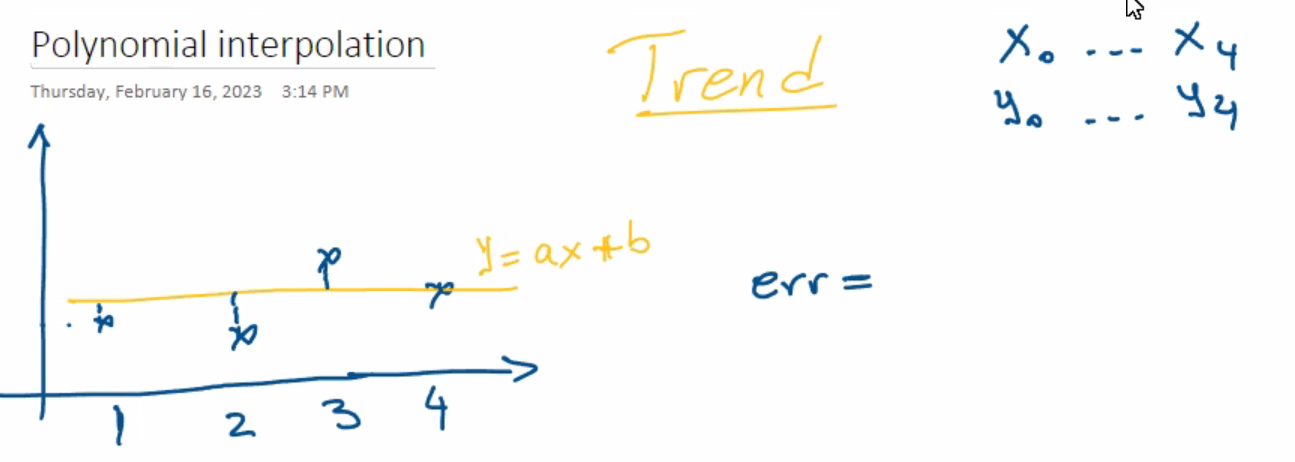 Polynomial interpolation
Thursday, February 16, 2023 3:14 PM
Trend
x₀ --- x₄
y₀ --- y₄
y = ax + b
err =
1 2 3 4